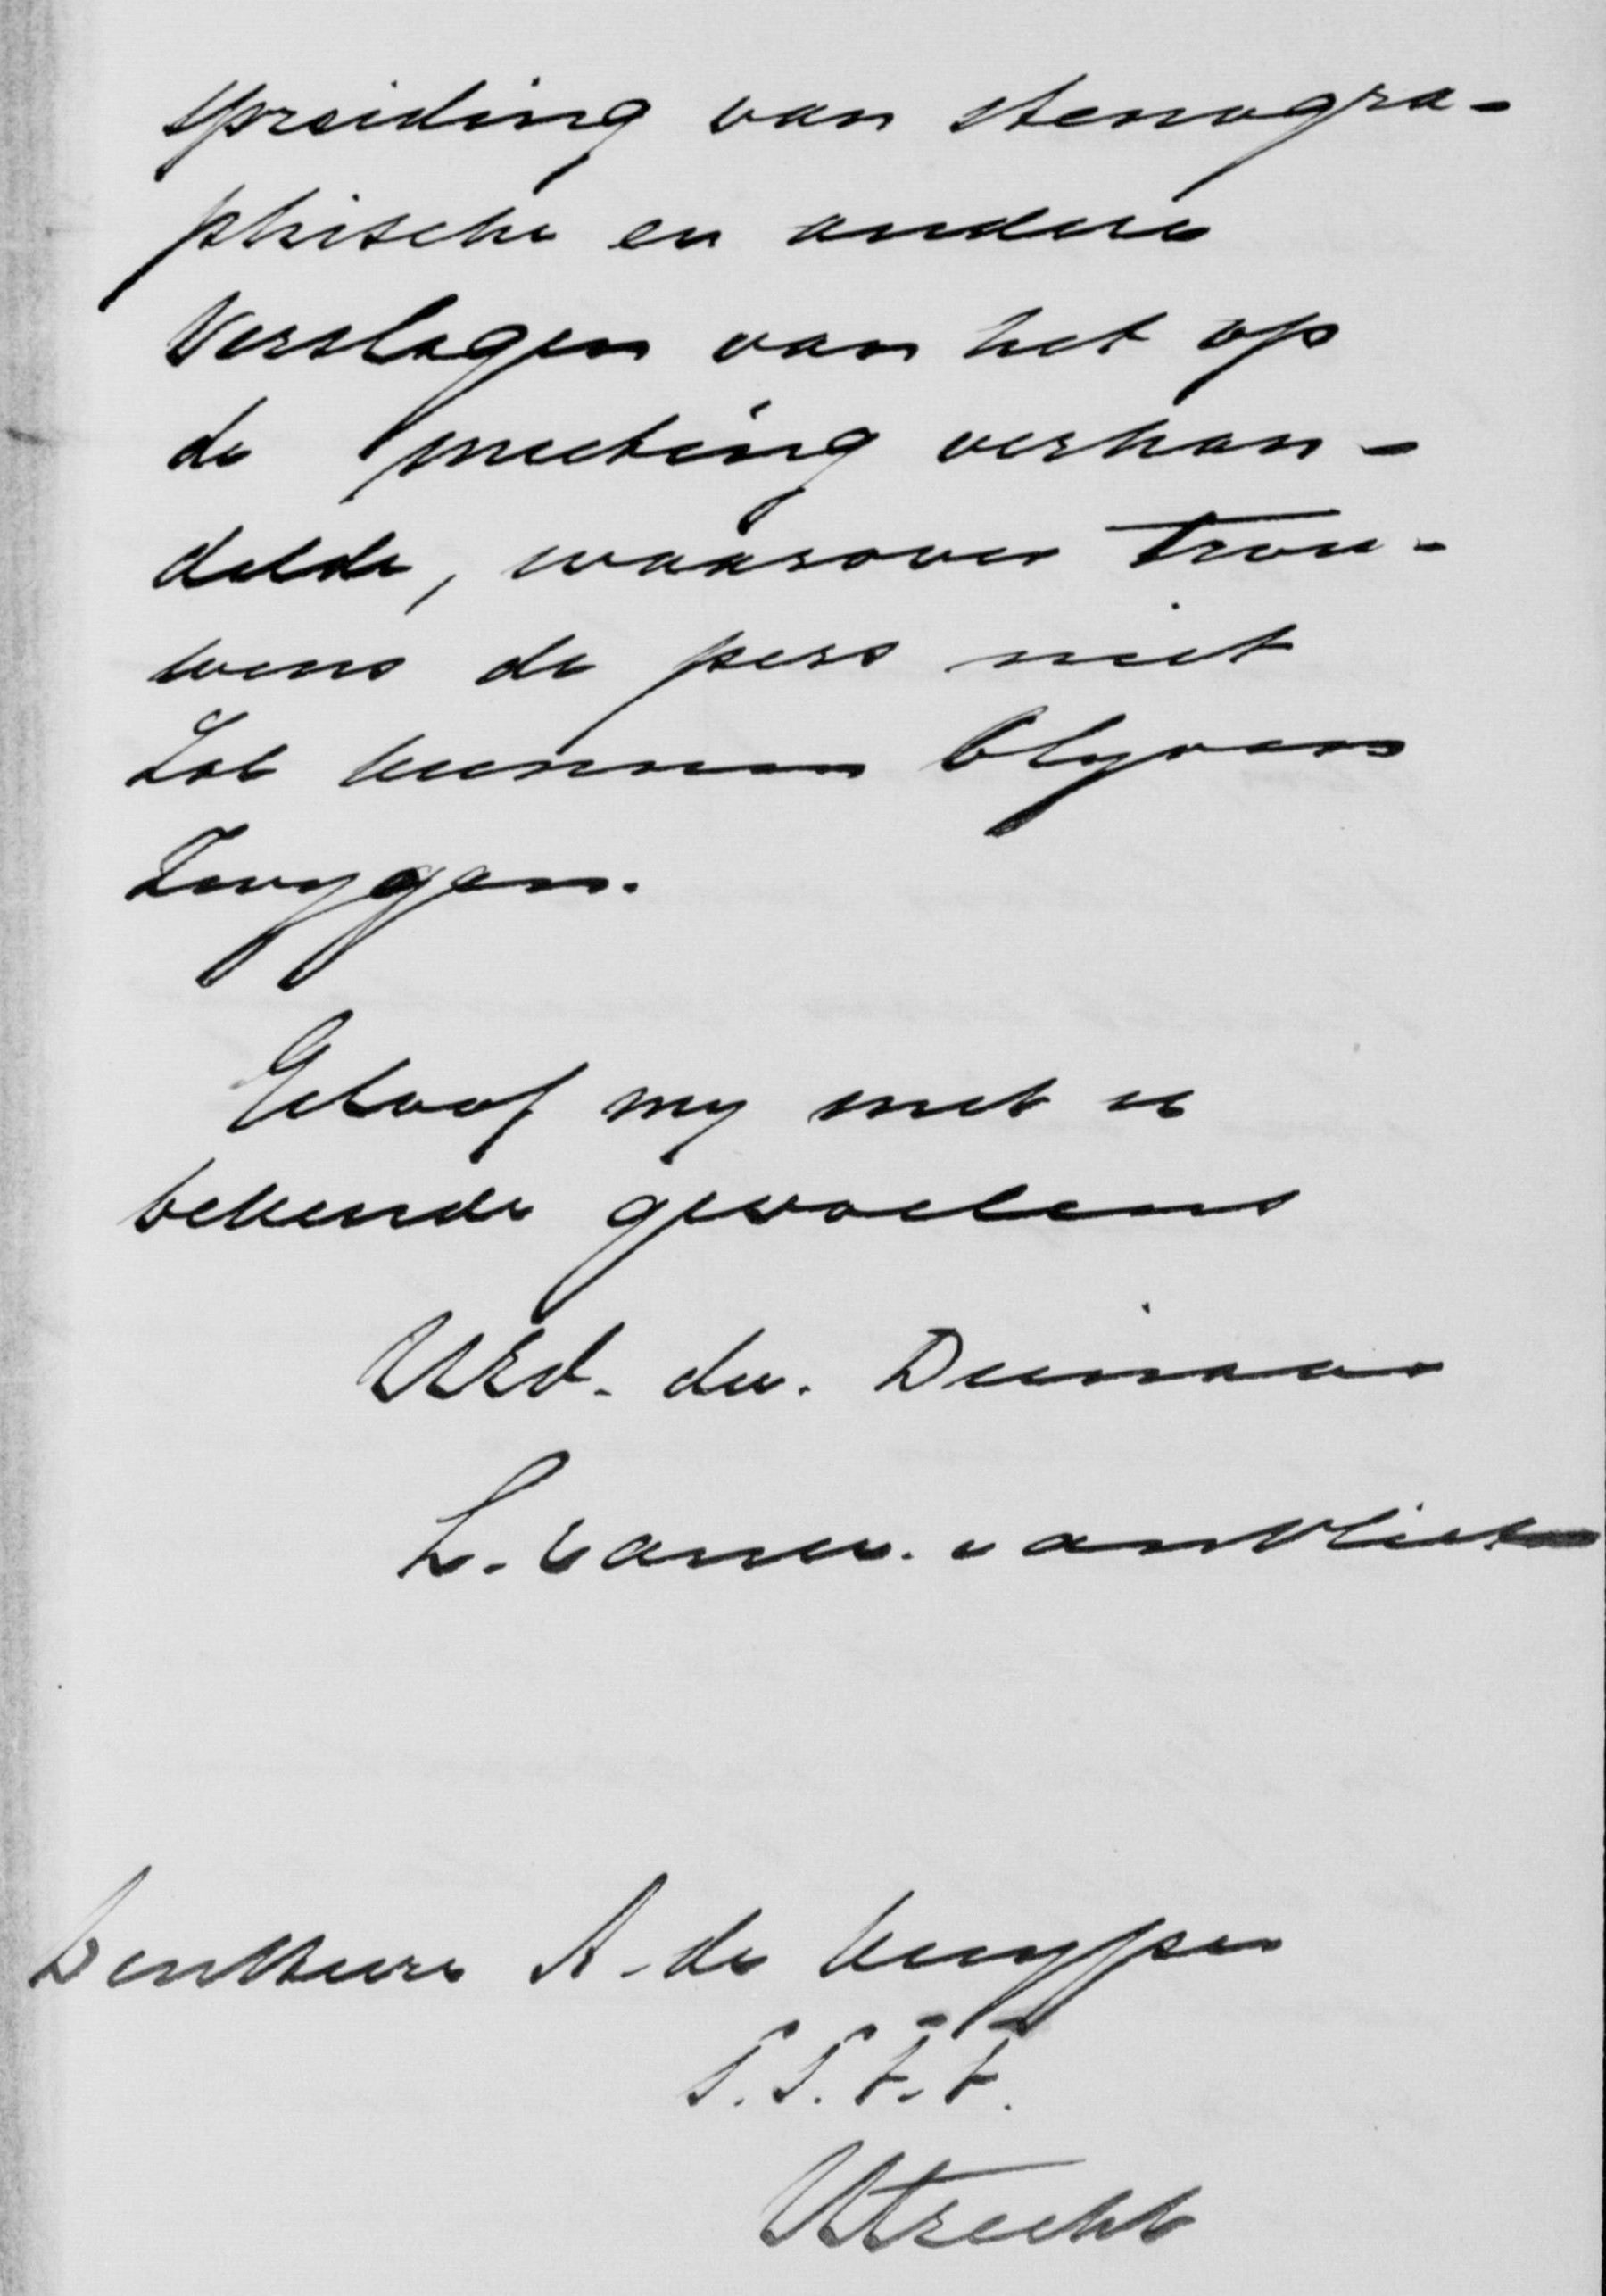 spreiding van stenogra-
phische en andere
Verslagen van het op
de meeting verhan-
delde, waarover trou-
wens de pers niet
Zal kunnen blyven
Zwygen.
Geloof my met u
bekende gevoelens
UEd. dw. Dienaar
L. van Vliet
A. de Kuyper
S.S.t.t.
Utrecht